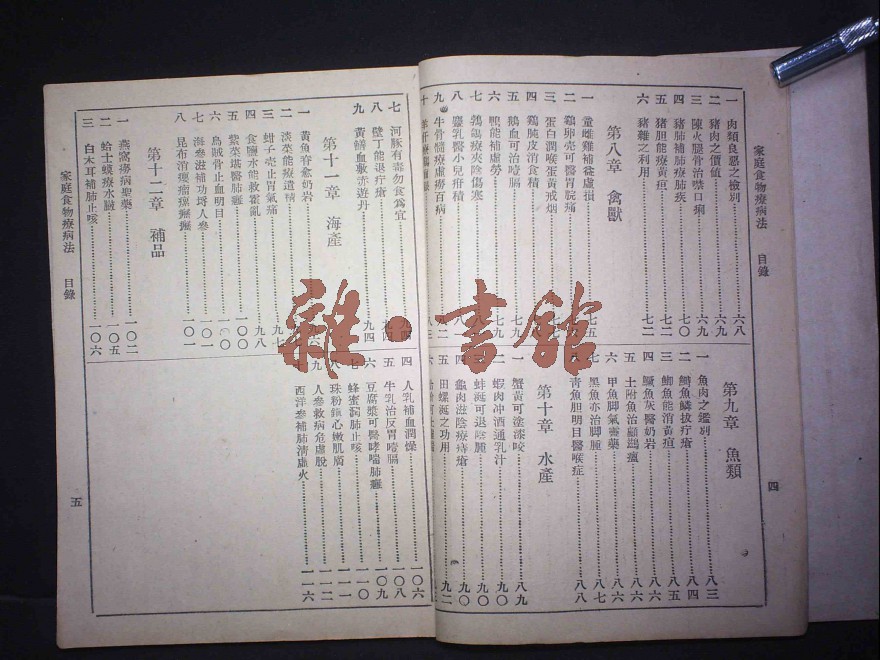 家庭食物療病法 目錄
四
一 肉類良惡之檢別 六八
二 豬肉之價値 六九
三 陳火腿骨治噤口痢 六九
四 豬肺補肺療肺疾 七〇
五 豬胆能療黃疸 七二
六 豬雜之利用 七二
第八章 禽獸
一 童雌雞補益虛損 七五
二 雞卵壳可醫胃脘痛
三 蛋白潤喉蛋黃戒烟
四 雞肫皮消食積
五 鵝血可治噎膈 七九
六 鴨能補虛勞 七九
七 鵓鴿療夾陰傷寒
八 麞乳醫小兒疳積
九 牛骨髓療虛癆百病 八二
十
第九章 魚類
一 魚肉之鑑別 八三
二 鰣魚鱗拔疔瘡 八四
三 鯽魚能消黃疸 八五
四 鱖魚灰醫奶岩 八六
五 土附魚治顧鷀瘟 八六
六 甲魚脚氣靈藥 八六
七 黑魚亦治脚腫 八七
八 靑魚胆明目醫喉症 八八
第十章 水產
一 蟹黃可塗漆咬 八九
二 蝦肉冲酒通乳汁 九〇
三 蚌涎可退陰腫 九〇
四 龜肉滋陰療痔瘡 九一
五 田螺涎之功用 九二
六
七 河豚有毒勿食爲宜 九四
八 壁丁能退疔瘡 九四
九 黃鱔血敷赤遊丹 九四
第十一章 海產
一 黃魚脊愈奶岩 九六
二 淡菜能療遺精
三 蚶子壳止胃氣痛 九七
四 食鹽水能救霍亂 九八
五 紫菜堪醫肺癰 一〇〇
六 烏賊骨止血明目 一〇〇
七 海參滋補功埒人參 一〇一
八 昆布消癭瘤瘰癧 一〇一
第十二章 補品
一 燕窩癆病聖藥 一〇二
二 蛤士蟆療水臌 一〇五
三 白木耳補肺止咳 一〇六
四 人乳補血潤燥 一〇六
五 牛乳治反胃噎膈 一〇八
六 豆腐漿可醫哮喘肺癰 一〇九
七 蜂蜜潤肺止咳 一一〇
八 珠粉鎭心嫩肌膚 一一一
九 人參救病危虛脫 一一二
十 西洋參補肺淸虛火 一一六
家庭食物療病法 目錄
五
雜·書館